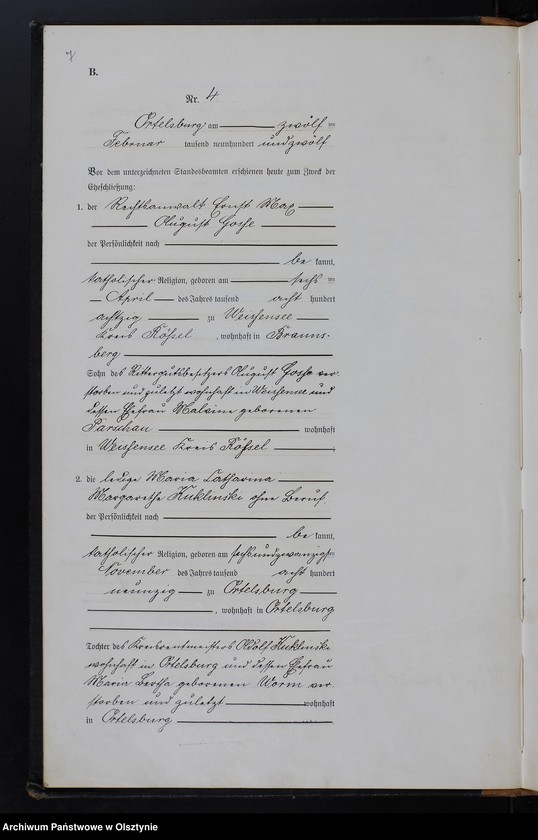 7
B.
Nr. 4
Ortelsburg am zwölf ten
Februar tausend neunhundert und zwölf
Vor dem unterzeichneten Standesbeamten erschienen heute zum Zweck der
Eheschließung:
1. der Rechtsanwalt Ernst Max
August
der Persönlichkeit nach
be kannt,
katholischer Religion, geboren am sechs ten
April des Jahres tausend acht hundert
achtzig zu Weissensee
Kreis Rößel, wohnhaft in Brauns-
berg
Sohn des Rittergutsbesitzers August ver-
storben und zuletzt wohnhaft in Weissensee und
dessen Ehefrau Malwine geborenen
Parschau wohnhaft
in Weissensee Kreis Rößel
2. die ledige Maria Catharina
Margarethe Kuklinski ohne Beruf,
der Persönlichkeit nach
be kannt,
katholischer Religion, geboren am sechsundzwanzigsten
November des Jahres tausend acht hundert
neunzig zu Ortelsburg
, wohnhaft in Ortelsburg
Tochter des Adolf Kuklinski
wohnhaft in Ortelsburg und dessen Ehefrau
Maria Bertha geborenen Worm ver-
storben und zuletzt wohnhaft
in Ortelsburg
Archiwum Państwowe w Olsztynie